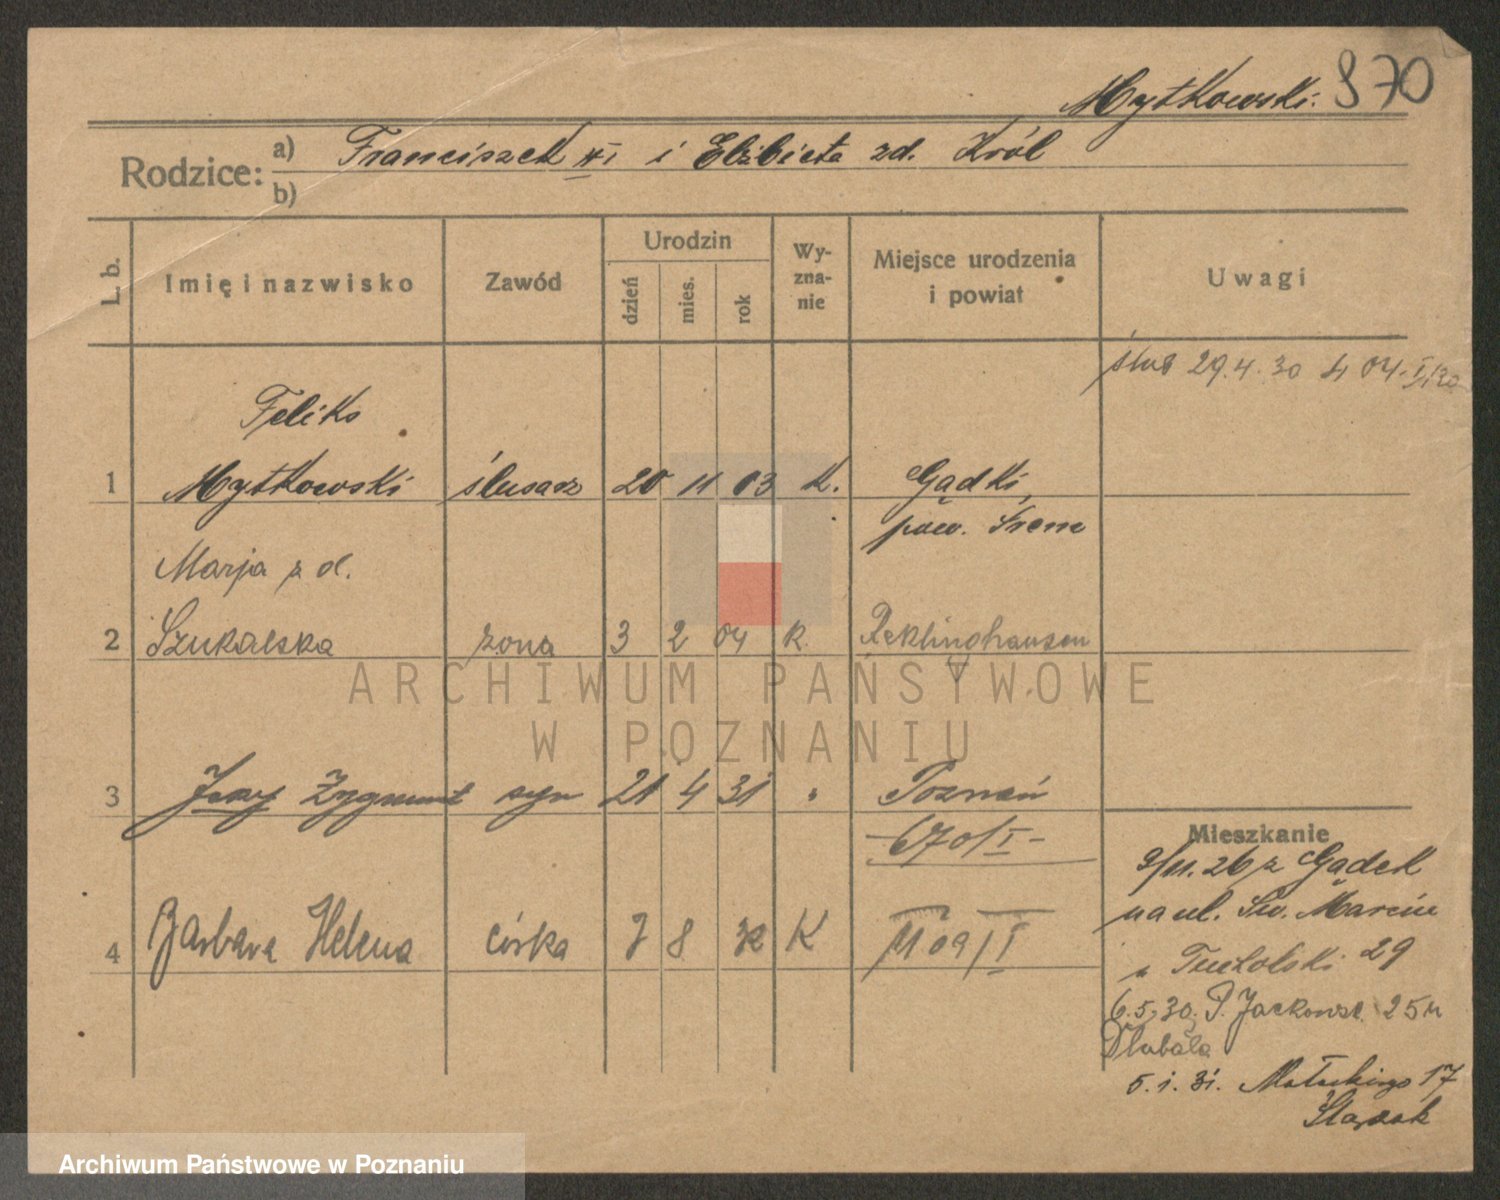 Mytkowski. 870
Rodzice:
a) Franciszek i Elżbieta zd. Król
b)
L. b.
Imię i nazwisko
Zawód
Urodzin
dzień
mies.
rok
Wy-
zna-
nie
Miejsce urodzenia
i powiat
Uwagi
ślub 29.4.30
Feliks
1 Mytkowski ślusarz 20 11 03 K. Gądki
pow. Śrem
Marja z d.
2 Szukalska żona 3 2 04 K. Reklinghausen
ARCHIWUM PAŃSTWOWE
W POZNANIU
3 Jerzy Zygmunt syn 21 4 31 " Poznań
-670/I-
Mieszkanie
9/11.26 z Gądek
na ul. Św. Marcin
4 Barbara Helena córka 7 8 32 K 1109/I
u Tucholski 29
6.5.30. P. Jackowsk. 25 u
5.1.31. 17
Archiwum Państwowe w Poznaniu